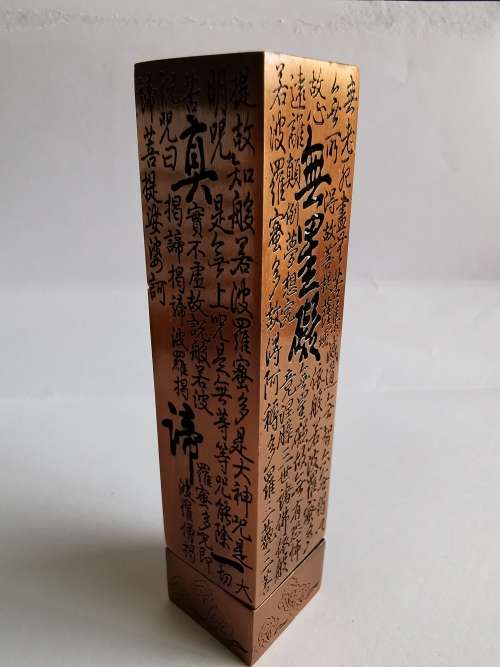 無老死盡
無所得故菩提薩埵依般若波羅蜜多
故心無罣礙無罣礙故無有恐怖
遠離顛倒夢想究竟涅槃三世諸佛依般
若波羅蜜多故得阿耨多羅三藐三菩
提故知般若波羅蜜多是大神咒是大
明咒是無上咒是無等等咒能除一切
苦真實不虛故說般若波羅蜜多咒即
說咒曰揭諦揭諦波羅揭諦波羅僧揭
諦菩提娑婆訶